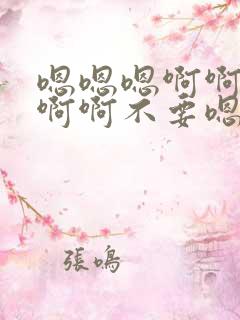 嗯嗯嗯啊啊
啊啊不要嗯
張鳴